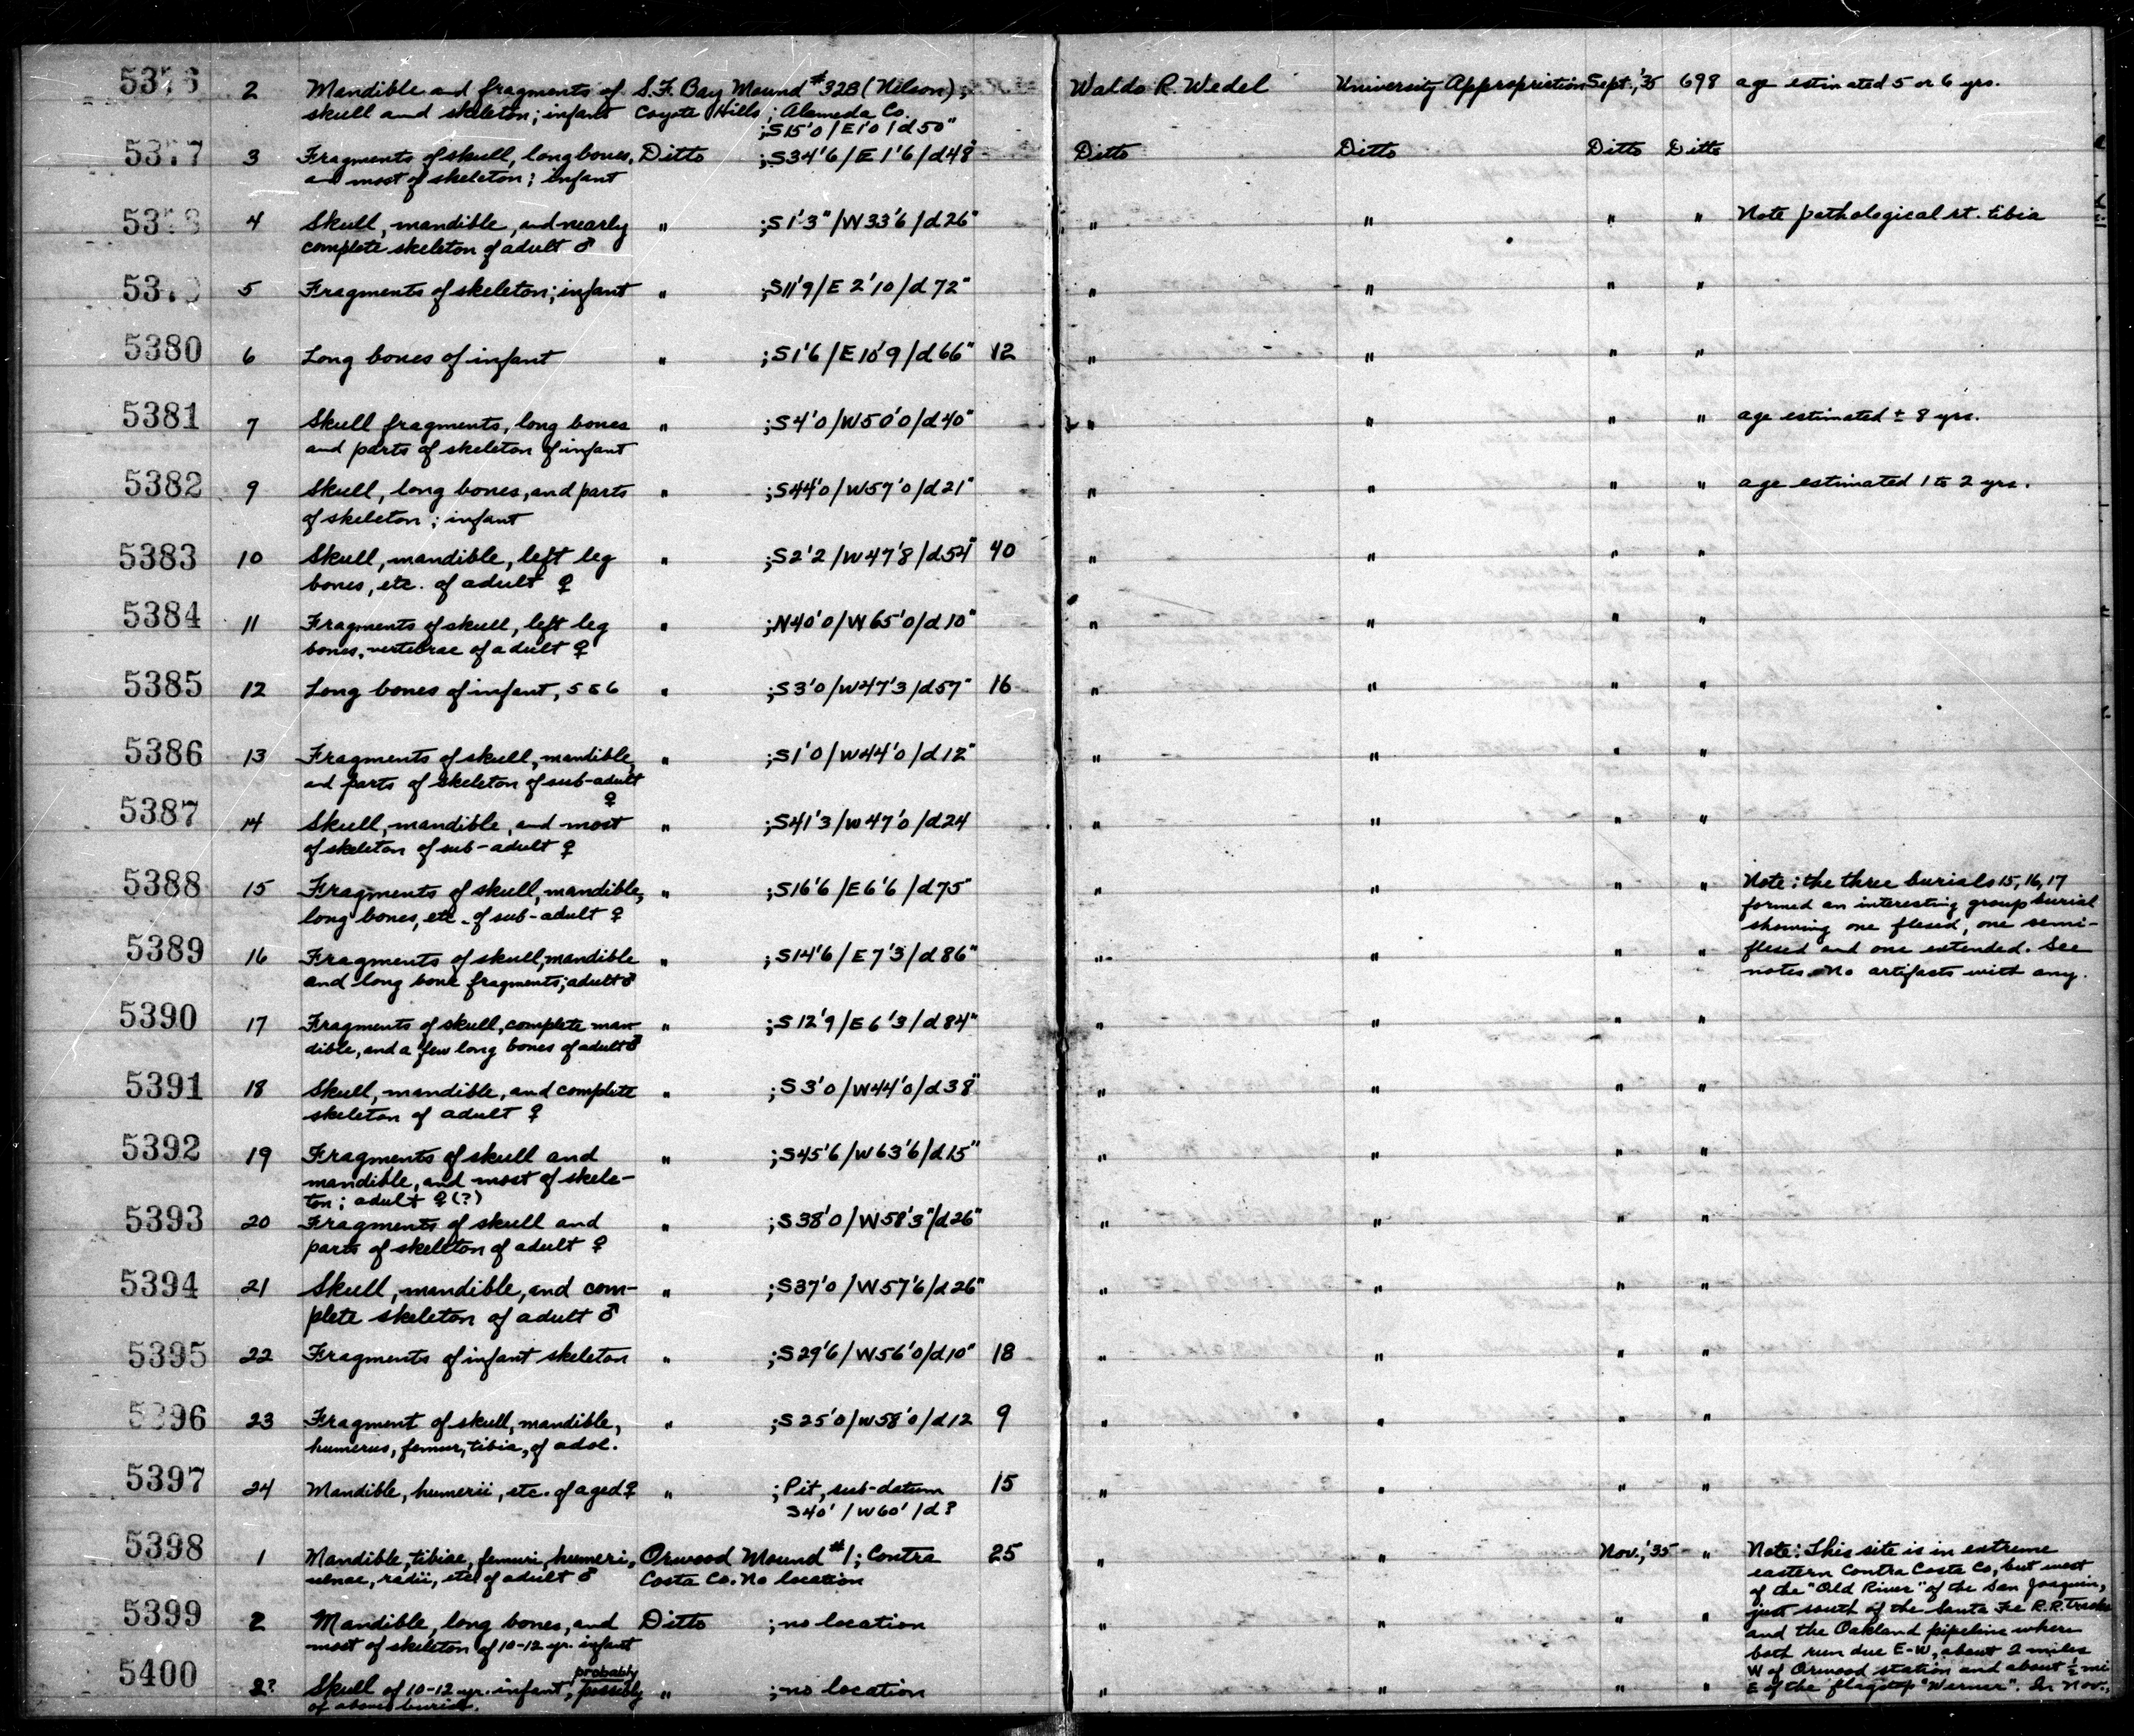 5376 2 Mandible and fragments of S.F. Bay Mound #328 (Nelson); Waldo R. Wedel University Appropriation Sept., '35 698 age estimated 5 or 6 yrs.
skull and skeleton; infant Coyote Hills; Alameda Co.
;S15'0/E1'0/d50"
5377 3 Fragments of skull, long bones, Ditto ;S34'6/E1'6/d48" Ditto Ditto Ditto Ditto
and most of skeleton; infant
5378 4 Skull, mandible, and nearly " ;S1'3"/W33'6/d26" " " " " Note pathological rt. tibia
complete skeleton of adult ♂
5379 5 Fragments of skeleton; infant " ;S11'9/E2'10/d72" " " " "
5380 6 Long bones of infant " ;S1'6/E10'9/d66" 12 " " " "
5381 7 Skull fragments, long bones " ;S4'0/W50'0/d40" " " " " age estimated ± 8 yrs.
and parts of skeleton of infant
5382 9 Skull, long bones, and parts " ;S44'0/W57'0/d21" " " " " age estimated 1 to 2 yrs.
of skeleton; infant
5383 10 Skull, mandible, left leg " ;S2'2/W47'8/d54" 40 " " " "
bones, etc. of adult ♀
5384 11 Fragments of skull, left leg " ;N40'0/W65'0/d10" " " " "
bones, vertebrae of adult ♀
5385 12 Long bones of infant, 5 & 6 " ;S3'0/W47'3/d57" 16 " " " "
5386 13 Fragments of skull, mandible, " ;S1'0/W44'0/d12" " " " "
and parts of skeleton of sub-adult
♀
5387 14 Skull, mandible, and most " ;S41'3/W47'0/d24 " " " "
of skeleton of sub-adult ♀
5388 15 Fragments of skull, mandible, " ;S16'6/E6'6/d75" " " " " Note: the three burials 15, 16, 17
long bones, etc. of sub-adult ♀ formed an interesting group burial
showing one flexed, one semi-
5389 16 Fragments of skull, mandible " ;S14'6/E7'3/d86" " " " " flexed and one extended. See
and long bone fragments; adult ♂ notes. No artifacts with any.
5390 17 Fragments of skull, complete man- " ;S12'9/E6'3/d84" " " " "
dible, and a few long bones of adult ♂
5391 18 Skull, mandible, and complete " ;S3'0/W44'0/d38" " " " "
skeleton of adult ♀
5392 19 Fragments of skull and " ;S45'6/W63'6/d15" " " " "
mandible, and most of skele-
ton; adult ♀ (?)
5393 20 Fragments of skull and " ;S38'0/W58'3"/d26" " " " "
parts of skeleton of adult ♀
5394 21 Skull, mandible, and com- " ;S37'0/W57'6/d26" " " " "
plete skeleton of adult ♂
5395 22 Fragments of infant skeleton " ;S29'6/W56'0/d10" 18 " " " "
5396 23 Fragment of skull, mandible, " ;S25'0/W58'0/d12 9 " " " "
humerus, femur, tibia, of adol.
5397 24 Mandible, humerii, etc. of aged ♀ " ;Pit, sub-datum 15 " " " "
S40'/W60'/d?
5398 1 Mandible, tibiae, femuri, humeri, Orwood Mound #1; Contra 25 " " Nov., '35 " Note: This site is in extreme
ulnae, radii, etc. of adult ♂ Costa Co. No location eastern Contra Costa Co, but west
of the "Old River" of the San Joaquin,
5399 2 Mandible, long bones, and Ditto ;no location " " " " just south of the Santa Fe R.R. tracks
most of skeleton of 10-12 yr. infant and the Oakland pipeline where
both run due E-W, about 2 miles
5400 2? Skull of 10-12 yr. infant, probably possibly " ;no location " " " " W of Orwood station and about ½ mi
of above burial. E of the flagstop "Werner". In Nov.,